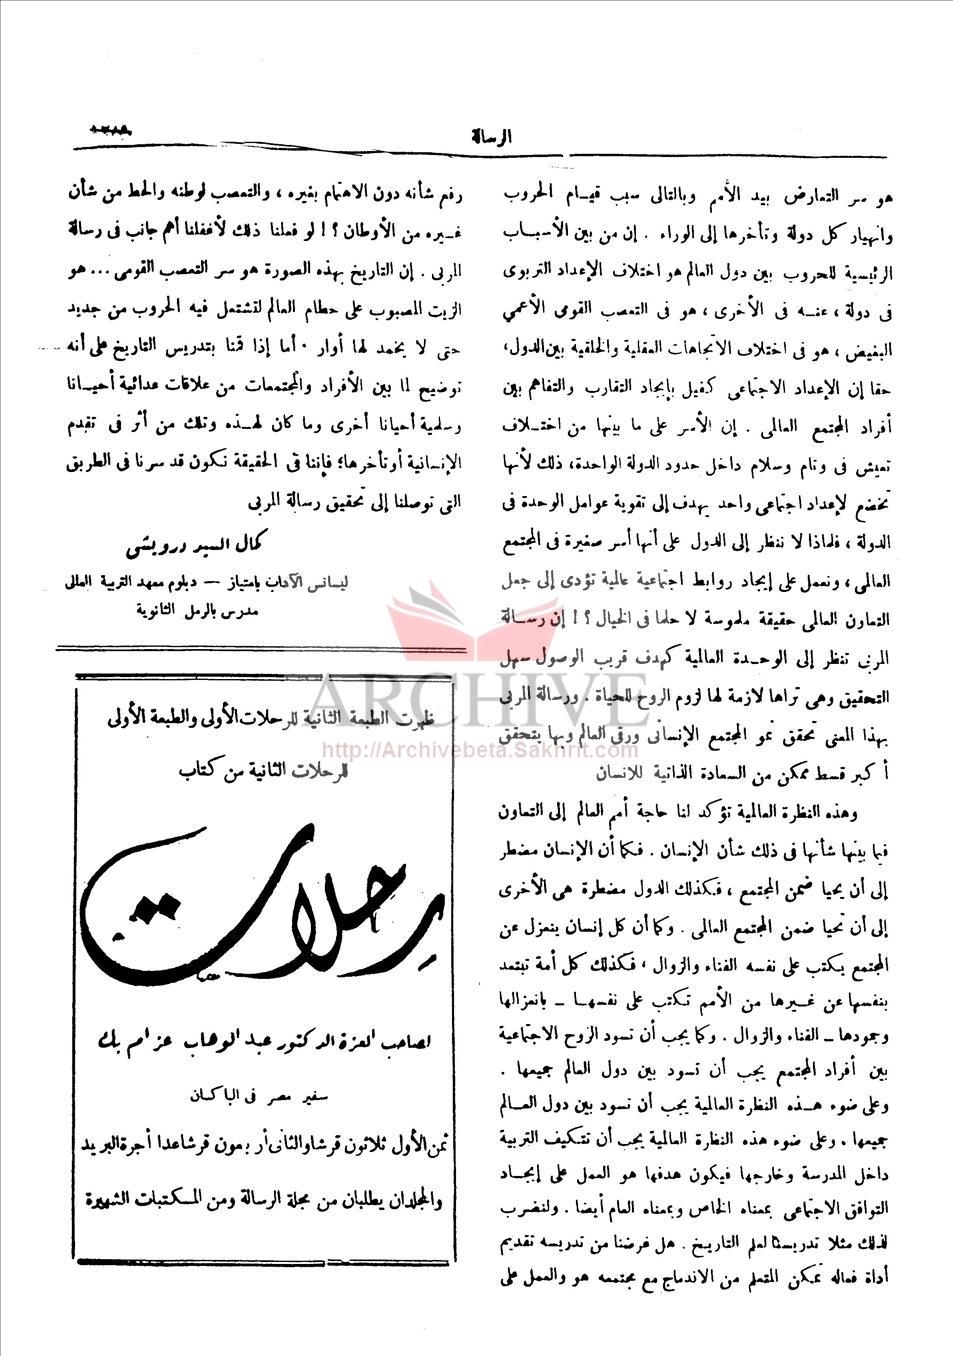 الرسالة
هو سر التعارض بيد الأمم وبالتالى سبب قيام الحروب
وانهيار كل دولة وتأخرها إلى الوراء . إن من بين الأسباب
الرئيسية للحروب بين دول العالم هو اختلاف الإعداد التربوى
فى دولة ، عنه فى الأخرى ، هو فى التعصب القومى الأعمي
البغيض ، هو فى اختلاف الاتجاهات العقلية والخلقية بين الدول ،
حقا إن الإعداد الاجتماعى كفيل بإيجاد التقارب والتفاهم بين
أفراد المجتمع العالمى . إن الأسر على ما بينها من اختلاف
تعيش فى وئام وسلام داخل حدود الدولة الواحدة، ذلك لأنها
تخضع لإعداد اجتماعى واحد يهدف إلى تقوية عوامل الوحدة فى
الدولة ، فلماذا لا ننظر إلى الدول على أنها أسر صغيرة فى المجتمع
العالمى ، ونعمل على إيجاد روابط اجتماعية عالمية تؤدى إلى جعل
التعاون العالمى حقيقة ملموسة لا حلما فى الخيال ؟ ! إن رسالة
المربى تنظر إلى الوحدة العالمية كهدف قريب الوصول سهل
التحقيق وهى تراها لازمة لها لزوم الروح للحياة . ورسالة المربى
بهذا المعنى تحقق نمو المجتمع الإنسانى ورقى العالم وبها يتحقق
أكبر قسط ممكن من السعادة الذاتية للانسان
وهذه النظرة العالمية تؤكد لنا حاجة أمم العالم إلى التعاون
فيما بينها شأنها فى ذلك شأن الإنسان . فكما أن الإنسان مضطر
إلى أن يحيا ضمن المجتمع ، فكذلك الدول مضطرة هى الأخرى
إلى أن تحيا ضمن المجتمع العالمى . وكما أن كل إنسان ينعزل عن
المجتمع يكتب على نفسه الفناء والزوال ، فكذلك كل أمة تبتعد
بنفسها عن غيرها من الأمم تكتب على نفسها ــ بانعزالها
وجمودها ــ الفناء والزوال . وكما يجب أن تسود الروح الاجتماعية
بين أفراد المجتمع يجب أن تسود بين دول العالم جميعها .
وعلى ضوء هذه النظرة العالمية يجب أن تسود بين دول العالم
جميعها . وعلى ضوء هذه النظرة العالمية يجب أن تتكيف التربية
داخل المدرسة وخارجها فيكون هدفها هو العمل على إيجاد
التوافق الاجتماعى بمعناه الخاص وبمعناه العام أيضا . ولنضرب
لذلك مثلا تدريسنا لعلم التاريخ . هل غرضنا من تدريسه تقديم
أداة فعاله تمكن المتعلم من الاندماج مع مجتمعه هو والعمل على
رفع شأنه دون الاهتمام بغيره ، والتعصب لوطنه والحط من شأن
غيره من الأوطان ؟ ! لو فعلنا ذلك لأغفلنا أهم جانب فى رسالة
المربى . إن التاريخ بهذه الصورة هو سر التعصب القومى ... هو
الزيت المصبوب على حطام العالم لتشتعل فيه الحروب من جديد
حتى لا يخمد لها أوار . أما إذا قمنا بتدريس التاريخ على أنه
توضيح لما بين الأفراد والمجتمعات من علاقات عدائية أحيانا
وسلمية أحيانا أخرى وما كان لهذه وتلك من أثر فى تقدم
الإنسانية أو تأخرها؛ فإننا فى الحقيقة نكون قد سرنا فى الطريق
التى توصلنا إلى تحقيق رسالة المربى
كمال السيد درويش
ليسانس الآداب بامتياز — دبلوم معهد التربية العالى
مدرس بالرمل الثانوية
ظهرت الطبعة الثانية للرحلات الأولى والطبعة الأولى
للرحلات الثانية من كتاب
رحلات
لصاحب العزة الدكتور عبد الوهاب عزام بك
سفير مصر فى الباكستان
ثمن الأول ثلاثون قرشا والثانى أربعون قرشا عدا أجرة البريد
والمجلدان يطلبان من مجلة الرسالة ومن المكتبات الشهيرة
ARCHIVE
http://Archivebeta.Sakhrit.com